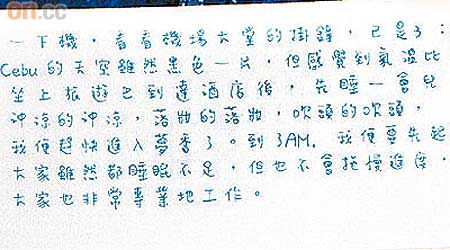 on.cc
東方
一下機，看看機場大堂的掛鐘，已是3：
Cebu的天空雖然黑色一片，但感覺到氣溫比
坐上旅遊巴到達酒店後，先睡一會兒
沖涼的沖涼，落妝的落妝，吹頭的吹頭，
我便趕快進入夢香了。到3AM，我便要先起
大家雖然都睡眠不足，但也不會拖慢進度，
大家也非常專業地工作。